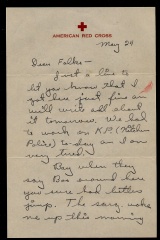 AMERICAN RED CROSS
May 29
Dear Folks—
Just a line to
let you know that I
got here just fine an
will write all about
it tomorrow. We had
to work on K.P. (Kitchen
Police) to-day an I am
very tired.
Boy when they
say Boo around here
you sure had better
jump. The sarg woke
me up this morning